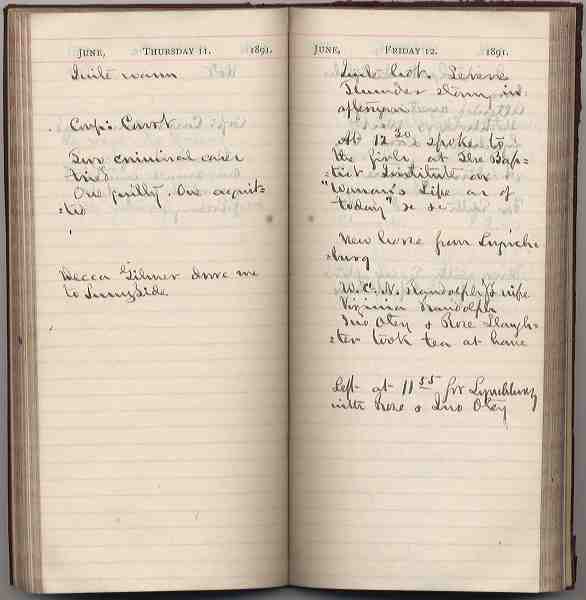 JUNE, THURSDAY 11. 1891.
Quite warm
Corp: Court
Two criminal cases
tried
One guilty. One acquit=
=ted
Decca Gilmer drove me
to Sunnyside
JUNE, FRIDAY 12. 1891.
Quite hot. Severe
Thunder storm in
afternoon
At 12 30 spoke to
the girls at the Bap=
=tist Institute on
"Woman's Life as of
today"
New horse from Lynch=
=burg
W. C. N. Randolph & wife
Virginia Randolph
Jno Otey & Rose Slaugh=
=ter took tea at home
Left at 11 55 for Lynchburg
with Rose & Jno Otey